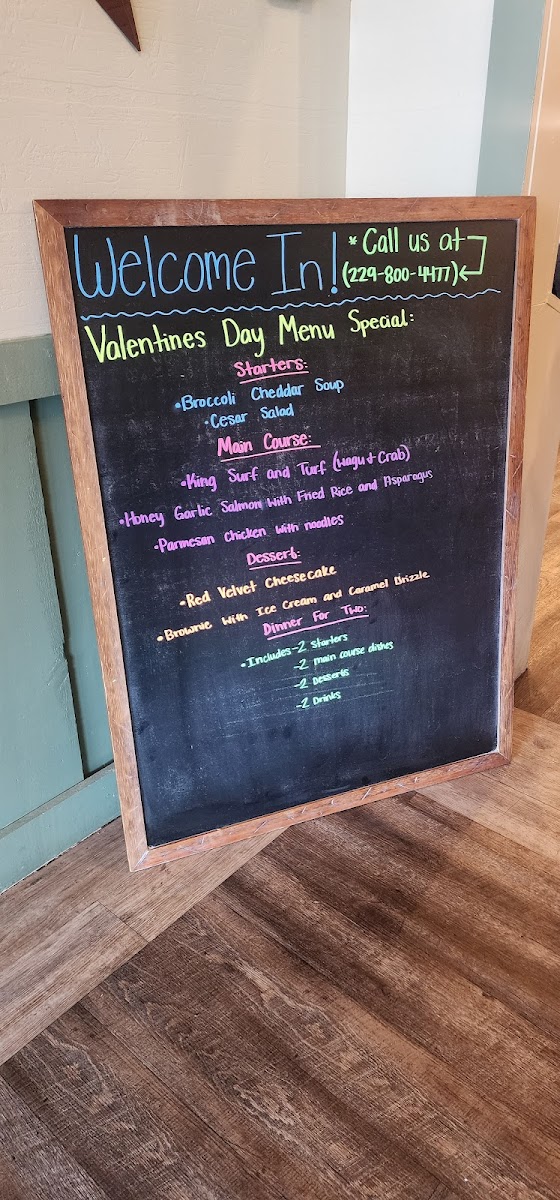 Welcome In! * Call us at
(229-800-4477)
Valentines Day Menu Special:
Starters:
•Broccoli Cheddar Soup
•Cesar Salad
Main Course:
•King Surf and Turf (Wagu & Crab)
•Honey Garlic Salmon With Fried Rice and Asparagus
•Parmesan Chicken With noodles
Dessert:
•Red Velvet Cheesecake
•Brownie With Ice Cream and Caramel Drizzle
Dinner For Two:
•Includes-2 Starters
-2 main course dishes
-2 Desserts
-2 Drinks